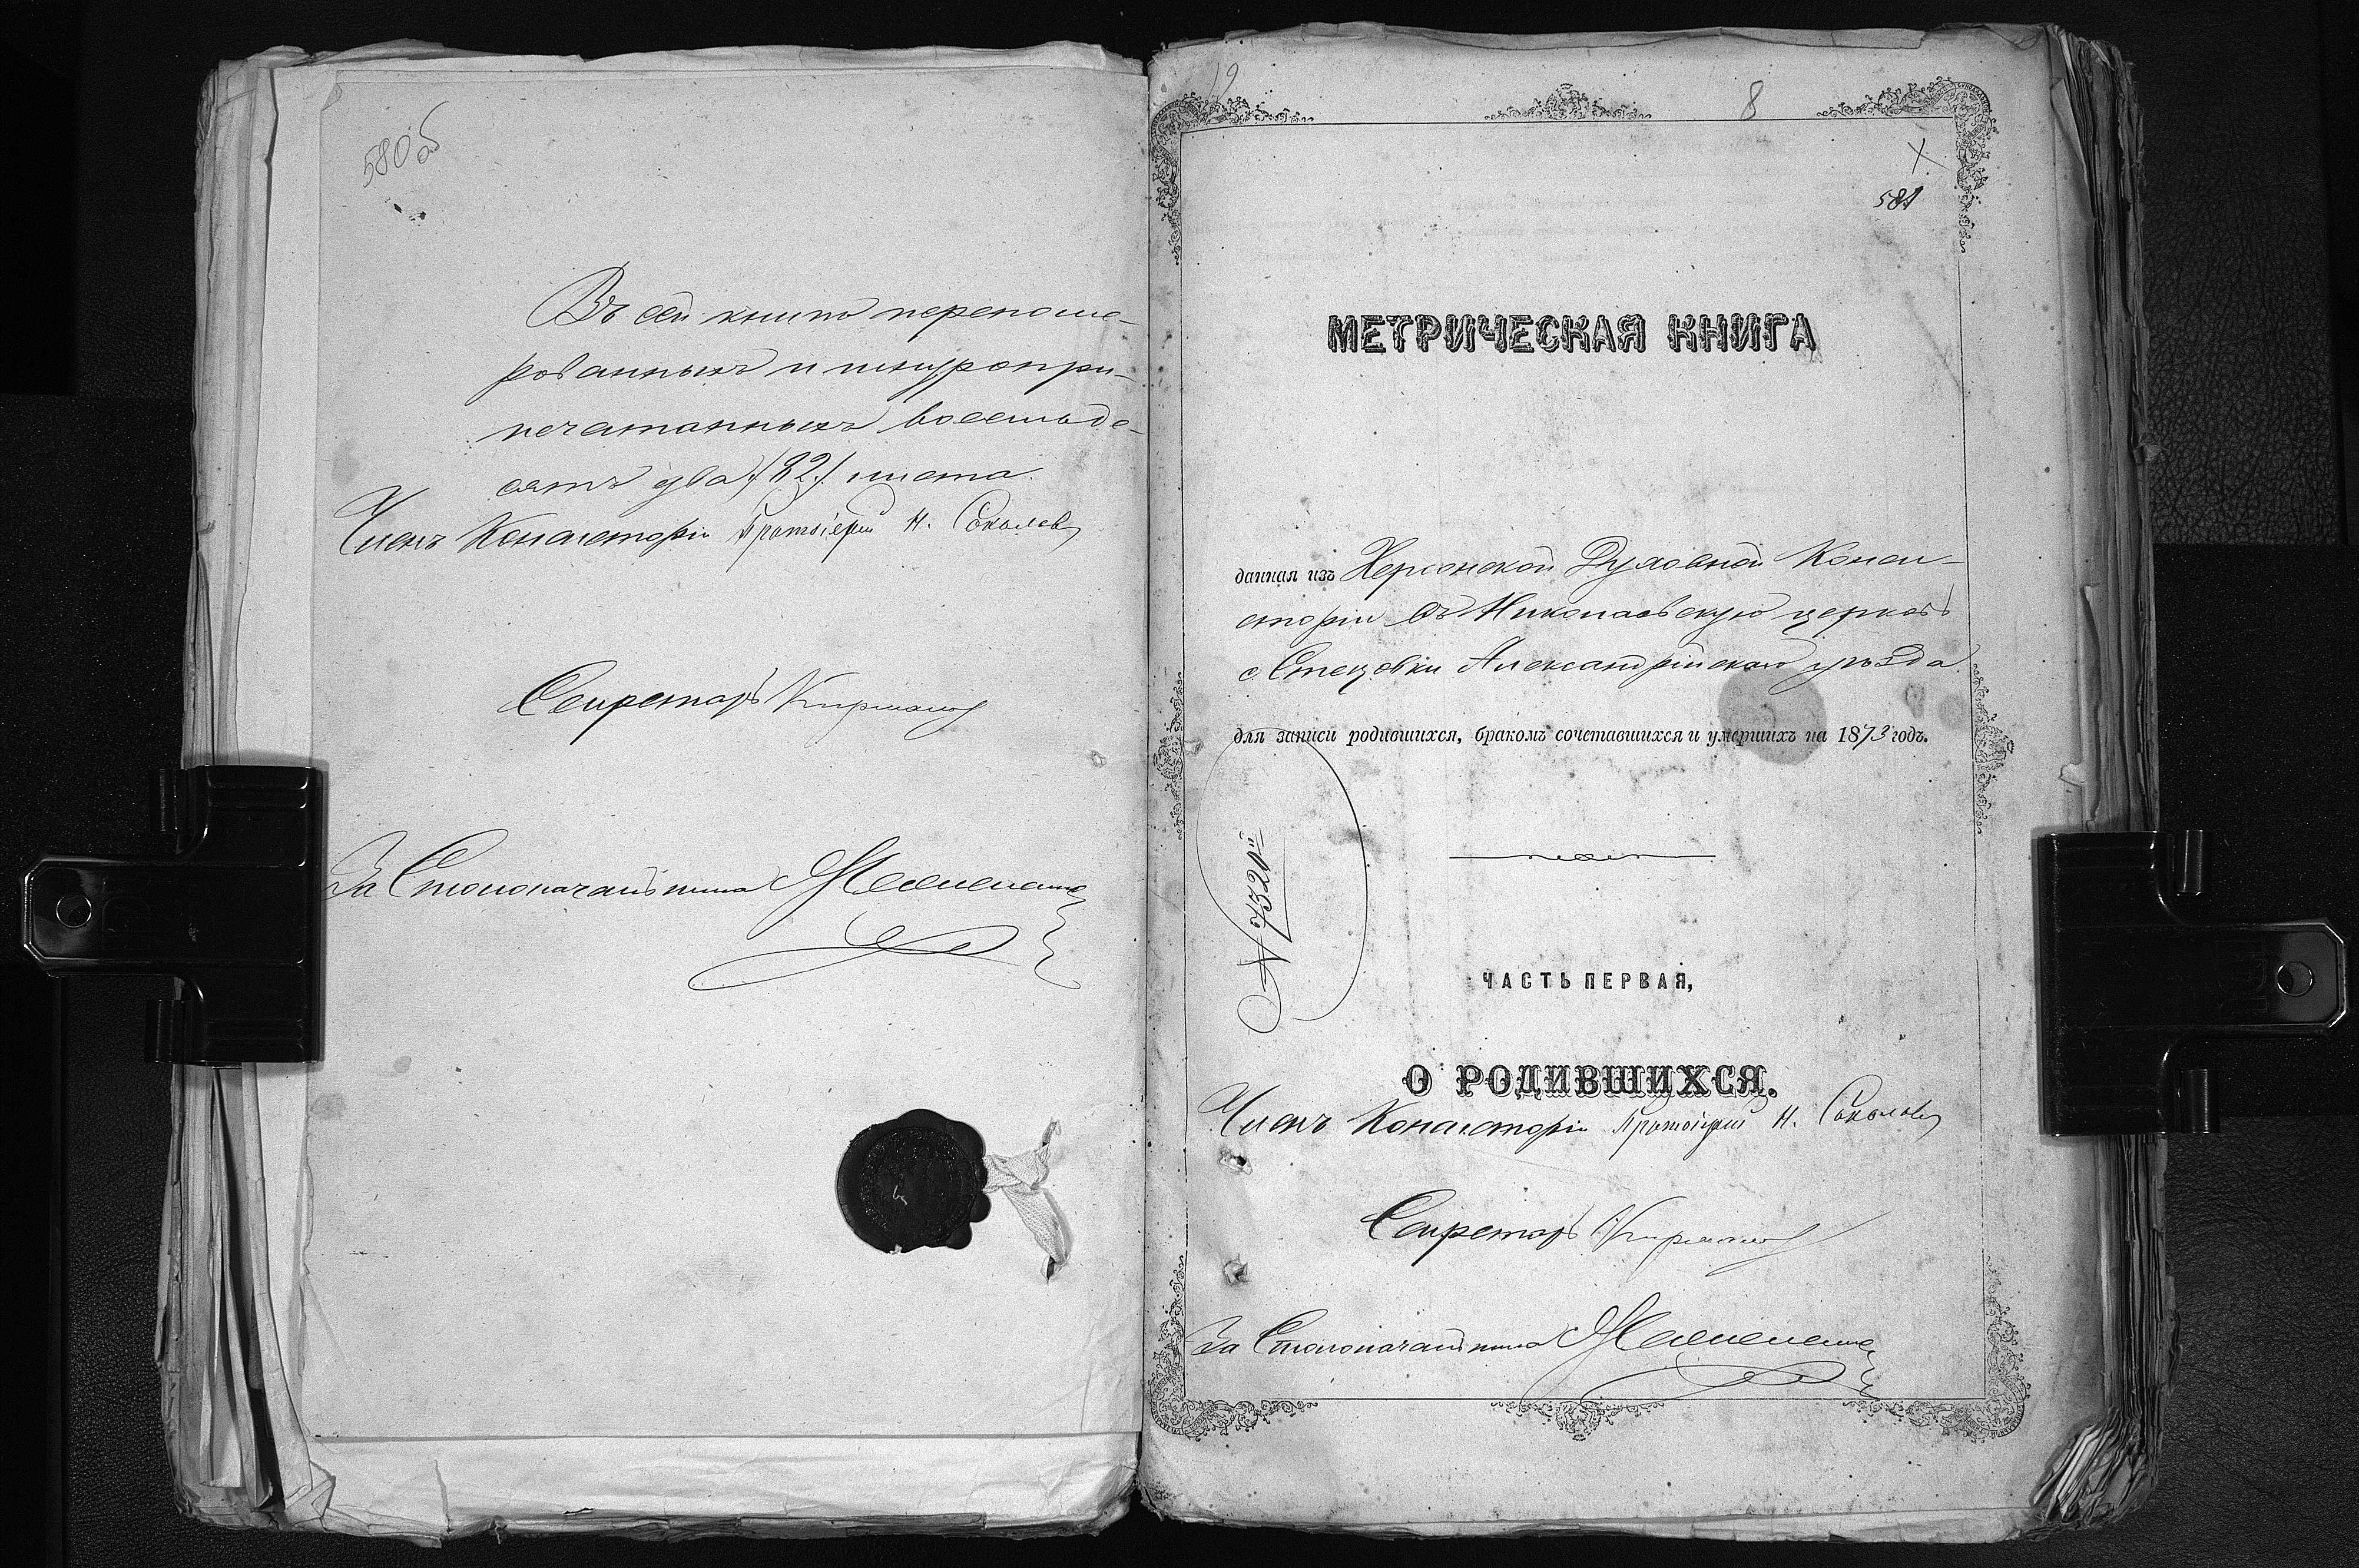 580об
Въ сей книгѣ перенуме-
рованныхъ и шнуропри-
печатанныхъ восемьде-
сятъ два /82/ листа.
Членъ Консисторіи Протоіерей Н. Соколовъ
Секретарь
За Столоначальника
19
8
X
581
МЕТРИЧЕСКАЯ КНИГА
данная изъ Херсонской Духовной Конси-
сторіи въ Николаевскую церковь
с. Стецовки Александрійскаго уѣзда
для записи родившихся, бракомъ сочетавшихся и умершихъ на 1873 годъ.
N 7320й
ЧАСТЬ ПЕРВАЯ,
О РОДИВШИХСЯ.
Членъ Консисторіи Протоіерей Н. Соколовъ
Секретарь
За Столоначальника